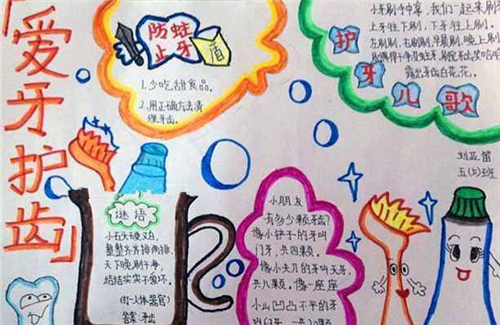 「爱牙护齿」
防蛀
止牙
盾
1.少吃甜食品。
2.用正确方法清
理牙齿。
小牙刷手中拿,我们一起来刷
上牙往下刷,下牙往上刷。
左刷刷,右刷刷,早晨刷,晚上刷
露出牙齿白花花。
护牙儿歌
班
谜语
小石头硬又白,
整整齐齐排两排,
天下晚刷干净,
结结实实不爱坏。
(打一人体器官)
答案:牙齿
小朋友
有多少颗牙齿?
像小铲子的牙叫
门牙,共四颗。
像小尖刀的牙叫犬牙,
共八颗。像一座座
小山凹凸不平的牙